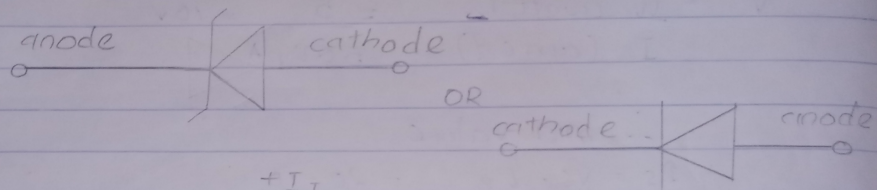 anode cathode
OR
cathode anode